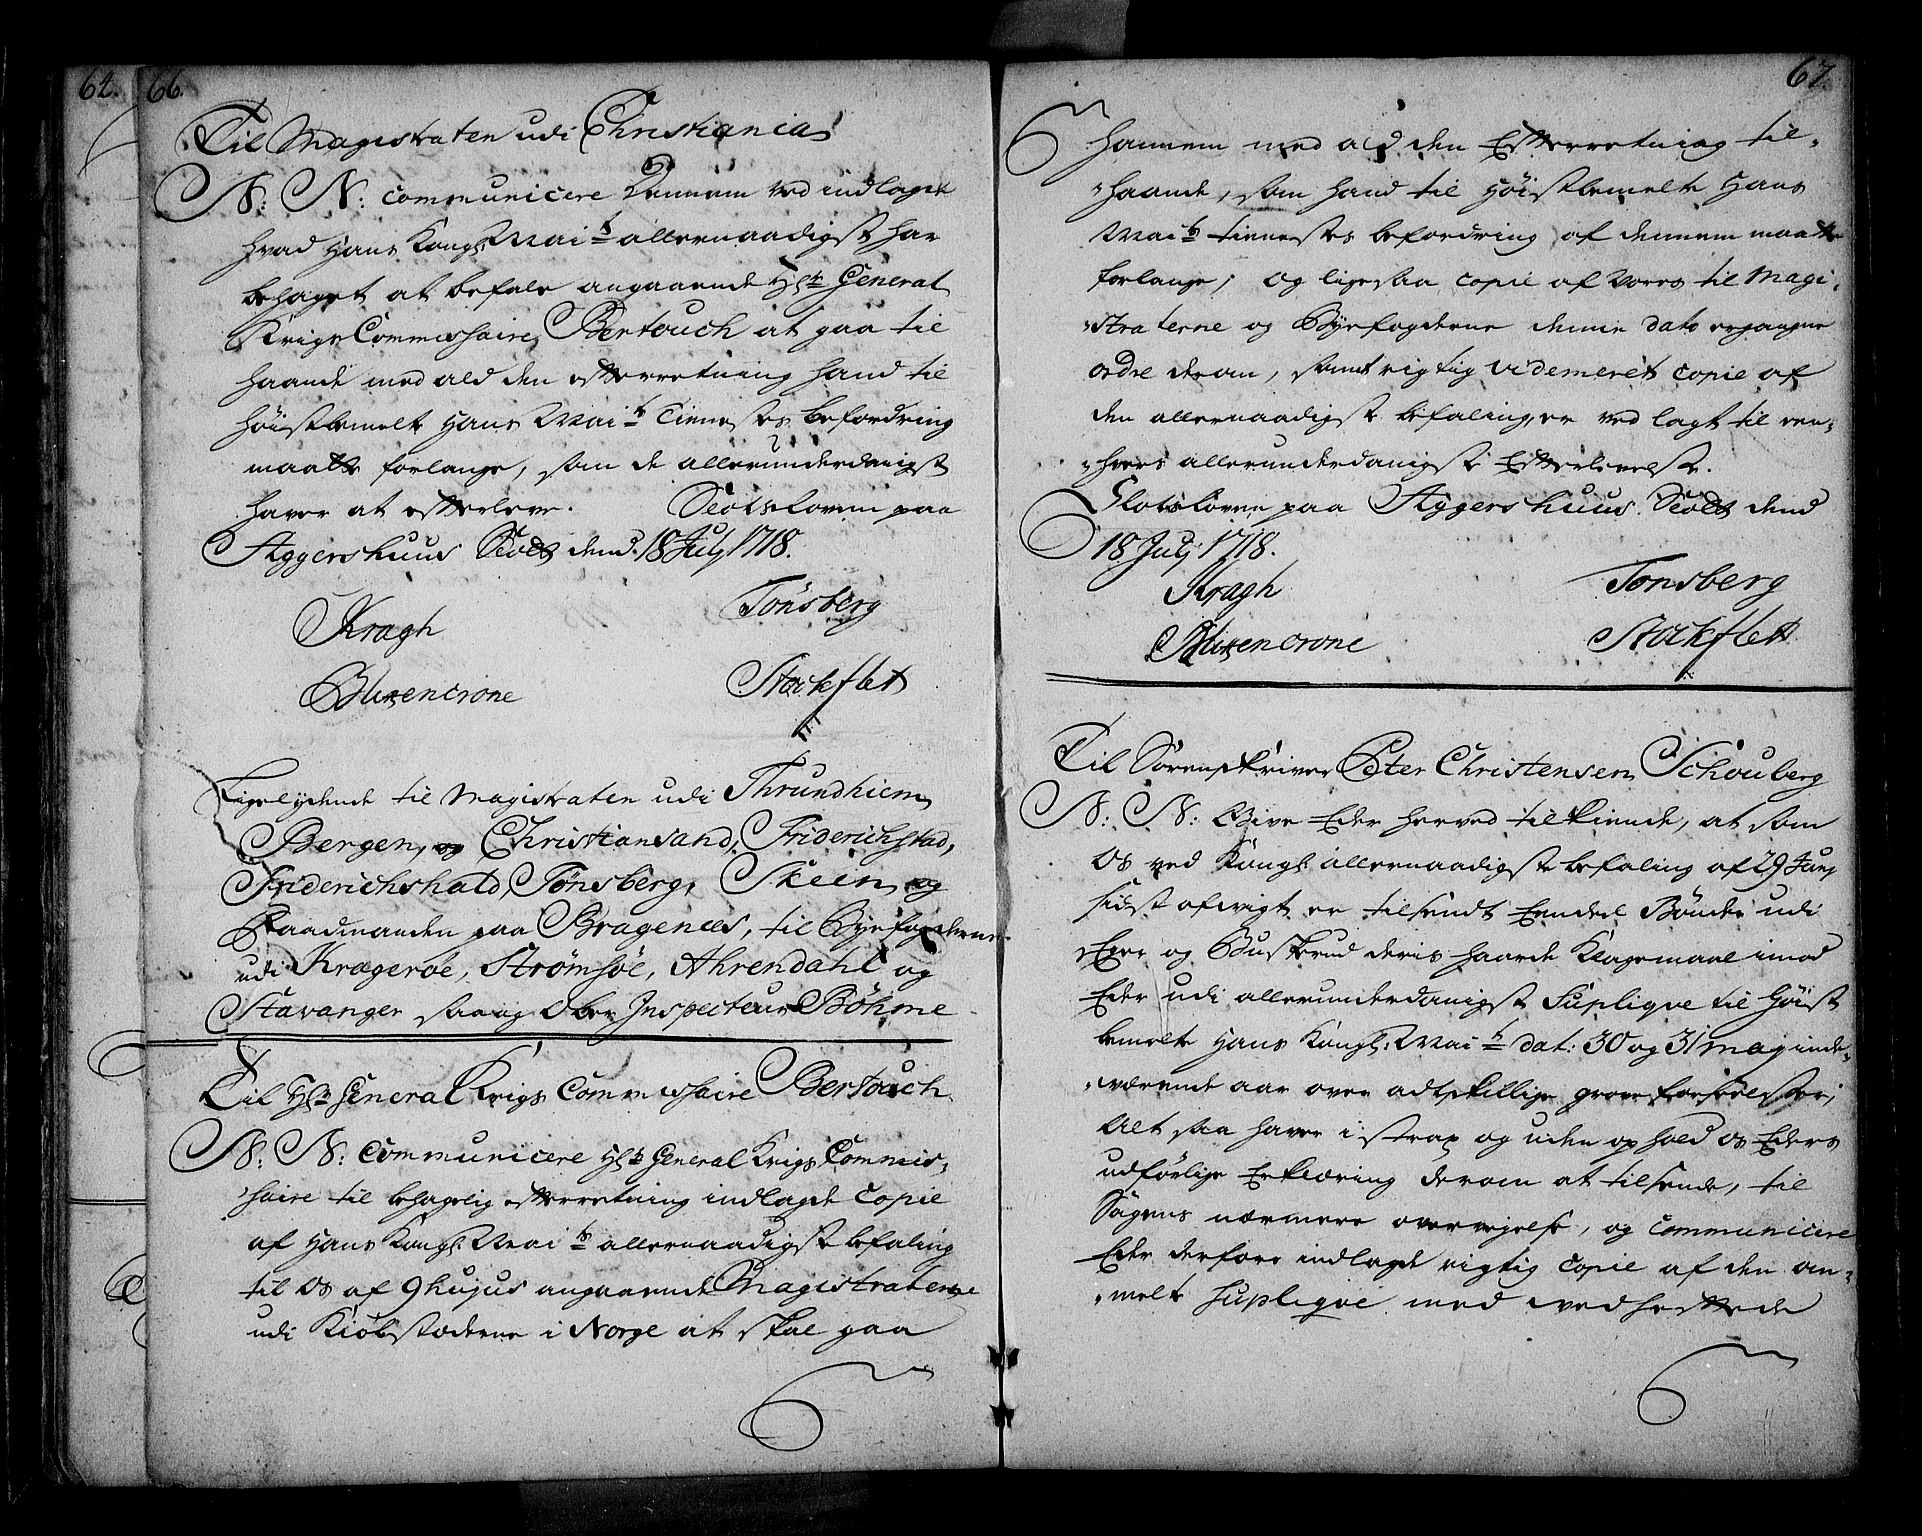 64.
66.
Til Magistraten udi Christiania
N: N: communicere Dennem ved indlagde
hvad Hans Kongl: Mai.ts allernaadigst har
behaget at befale angaaende Hr. General
Krigs Commissaire Bertouch at gaa til
haande med ald den efterretning hand til
høistbemelte Hans Mai.ts Tienestes befordring
maatte forlange, som de allerunderdanigst
haver at efterleve. Slotsloven paa
Aggershuus Slott dend. 18 July 1718.
Kragh Tønsberg
Blixencrone Stockflet
Ligelydende til Magistraten udi Thrundhiem
Bergen, og Christiansand, Friderichstad,
Friderichshald, Tønsberg, Skien, og
Raadmanden paa Bragenæs, til Byefogderne
udi Kragerøe, Strømsøe, Ahrendahl og
Stavanger saa og Ober Inspecteur Böhme
Til Hr. General Krigs Commissaire Bertouch
N: N: Communicere Hr. General Krigs Commis-
saire til behagelig efterretning indlagde Copie
af Hans Kongl: Mai.ts allernaadigste befaling
til os af 9 hujus angaaende Magistraterne
udi Kiøbstæderne i Norge at skal gaa
67.
hannem med ald den Efterretning til-
haande, som hand til Høistbemelte Hans
Mai.ts tienestes befordring af dennem maatte
forlange; og ligesaa copie af vores til Magi-
straterne og Byefogderne denne dato ergangne
ordre derom, samt rigtig videmeret copie af
den allernaadigste befaling, er ved lagt til een-
hvers allerunderdanigste Efterlevelse.
Slotsloven paa Aggershuus Slott dend
18 July 1718.
Kragh Tonsberg
Blixencrone Stockflett
Til Sorenskriver Peter Christensen Schouberg
N: N: Give Eder herved tilkiende, at som
os ved Kongl: allernaadigste befaling af 29 Juny
sidst afvigt er tilsendt Eendeel Bønder udi
Eger og Buskerud deris haarde Klagemaal imod
Eder udi allerunderdanigst Suplique til Høist
bemelte Hans Kongl: Mai.ts dat: 30 og 31 may inde-
værende aar over adtskillige grove forseelser;
Alt saa haver i strax og uden ophold os Eders
udførlige Erklæring derom at tilsende, til
Sagens nærmere overvejelse, og communicere
Eder derfore indlagde rigtig Copie af den om-
melte Suplique med vedheftede